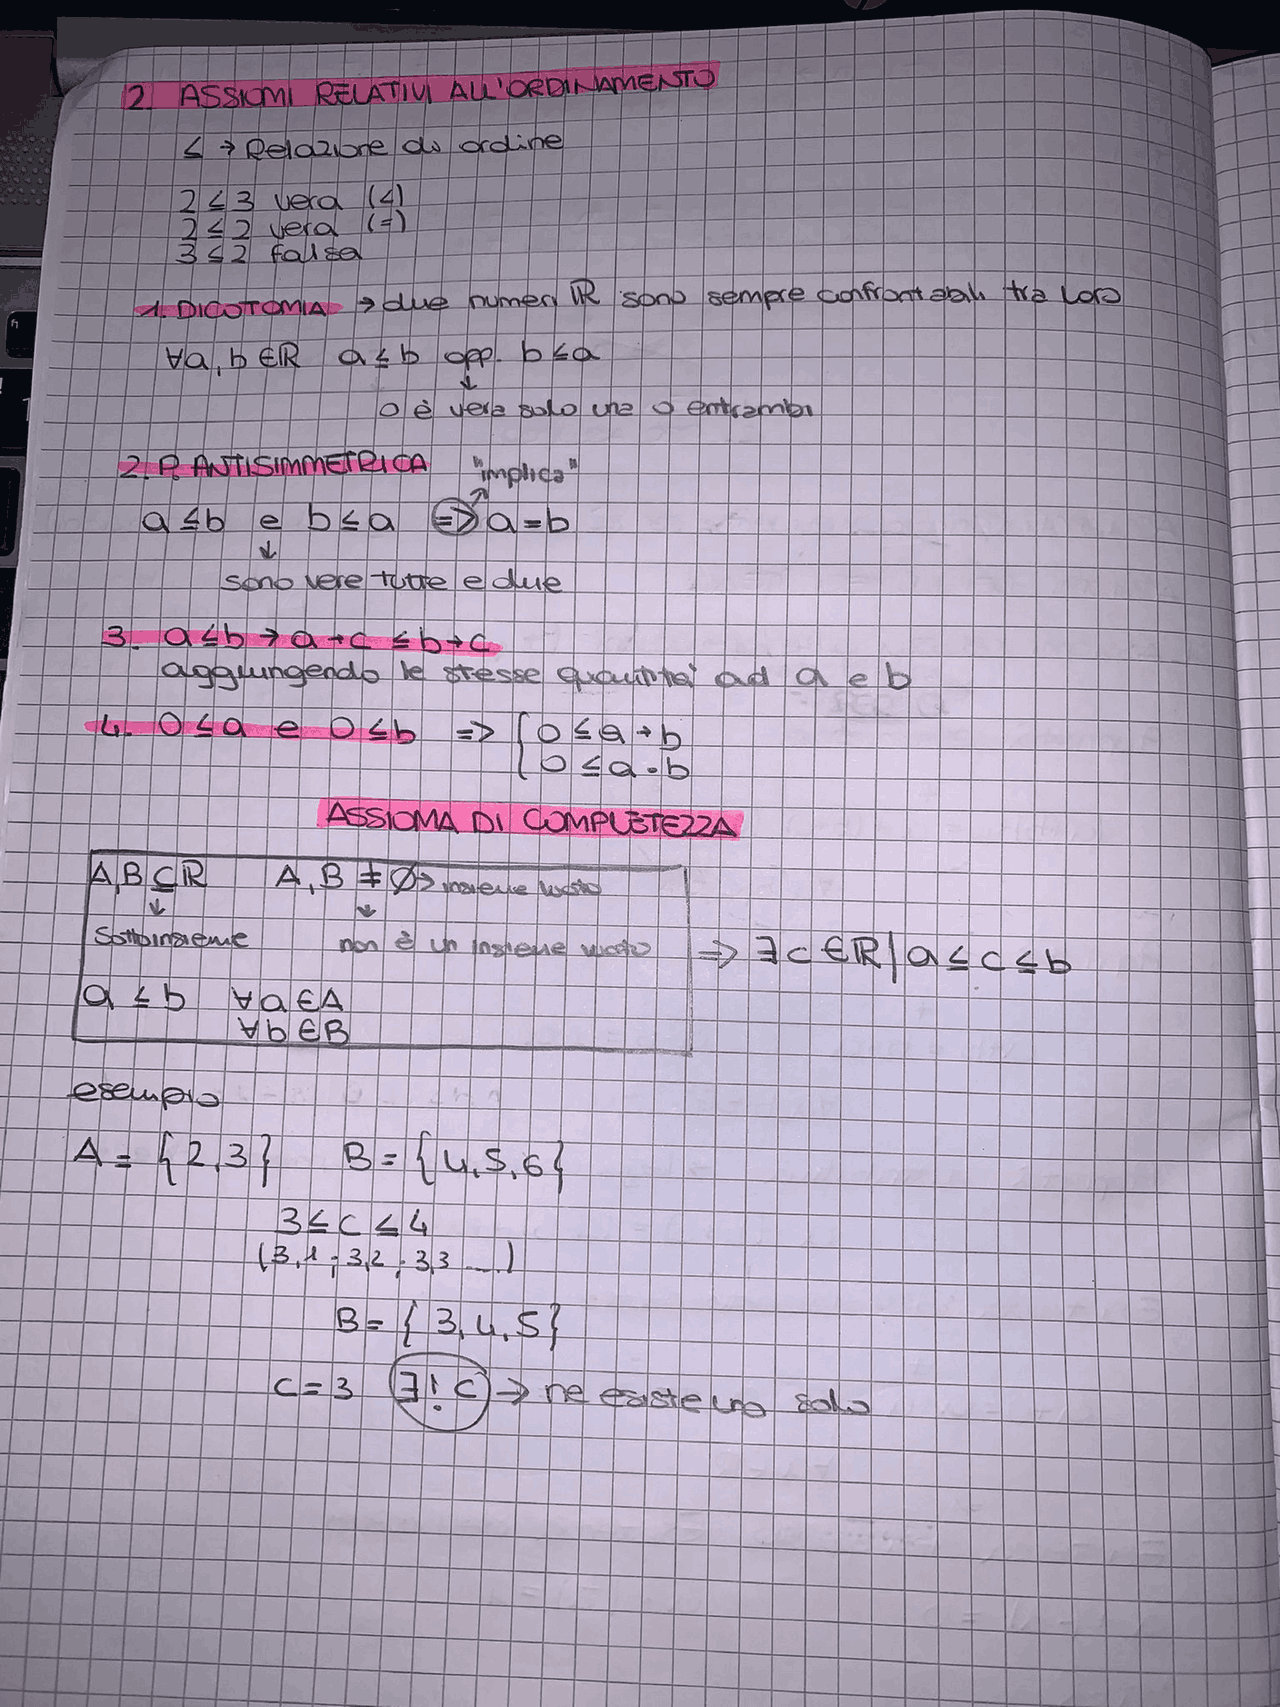 2. ASSIOMI RELATIVI ALL'ORDINAMENTO
≤ → Relazione di ordine
2 ≤ 3 vera (<)
2 ≤ 2 vera (=)
3 ≤ 2 falsa
1. DICOTOMIA → due numeri ℝ sono sempre confrontabili tra loro
∀a, b ∈ ℝ a ≤ b opp. b ≤ a
↓
o è vera solo una o entrambi
2. P. ANTISIMMETRICA "implica"
a ≤ b e b ≤ a => a = b
↓
sono vere tutte e due
3. a ≤ b → a + c ≤ b + c
aggiungendo le stesse quantità ad a e b
4. 0 ≤ a e 0 ≤ b => { 0 ≤ a + b
0 ≤ a · b
ASSIOMA DI COMPLETEZZA
A, B ⊆ ℝ A, B ≠ ∅ → insieme vuoto
↓ ↓
Sottoinsieme non è un insieme vuoto => ∃ c ∈ ℝ | a ≤ c ≤ b
a ≤ b ∀a ∈ A
∀b ∈ B
esempio
A = {2,3} B = {4,5,6}
3 ≤ c ≤ 4
(3,1 ; 3,2 ; 3,3 ...)
B = {3,4,5}
c = 3 ∃! c → ne esiste uno solo